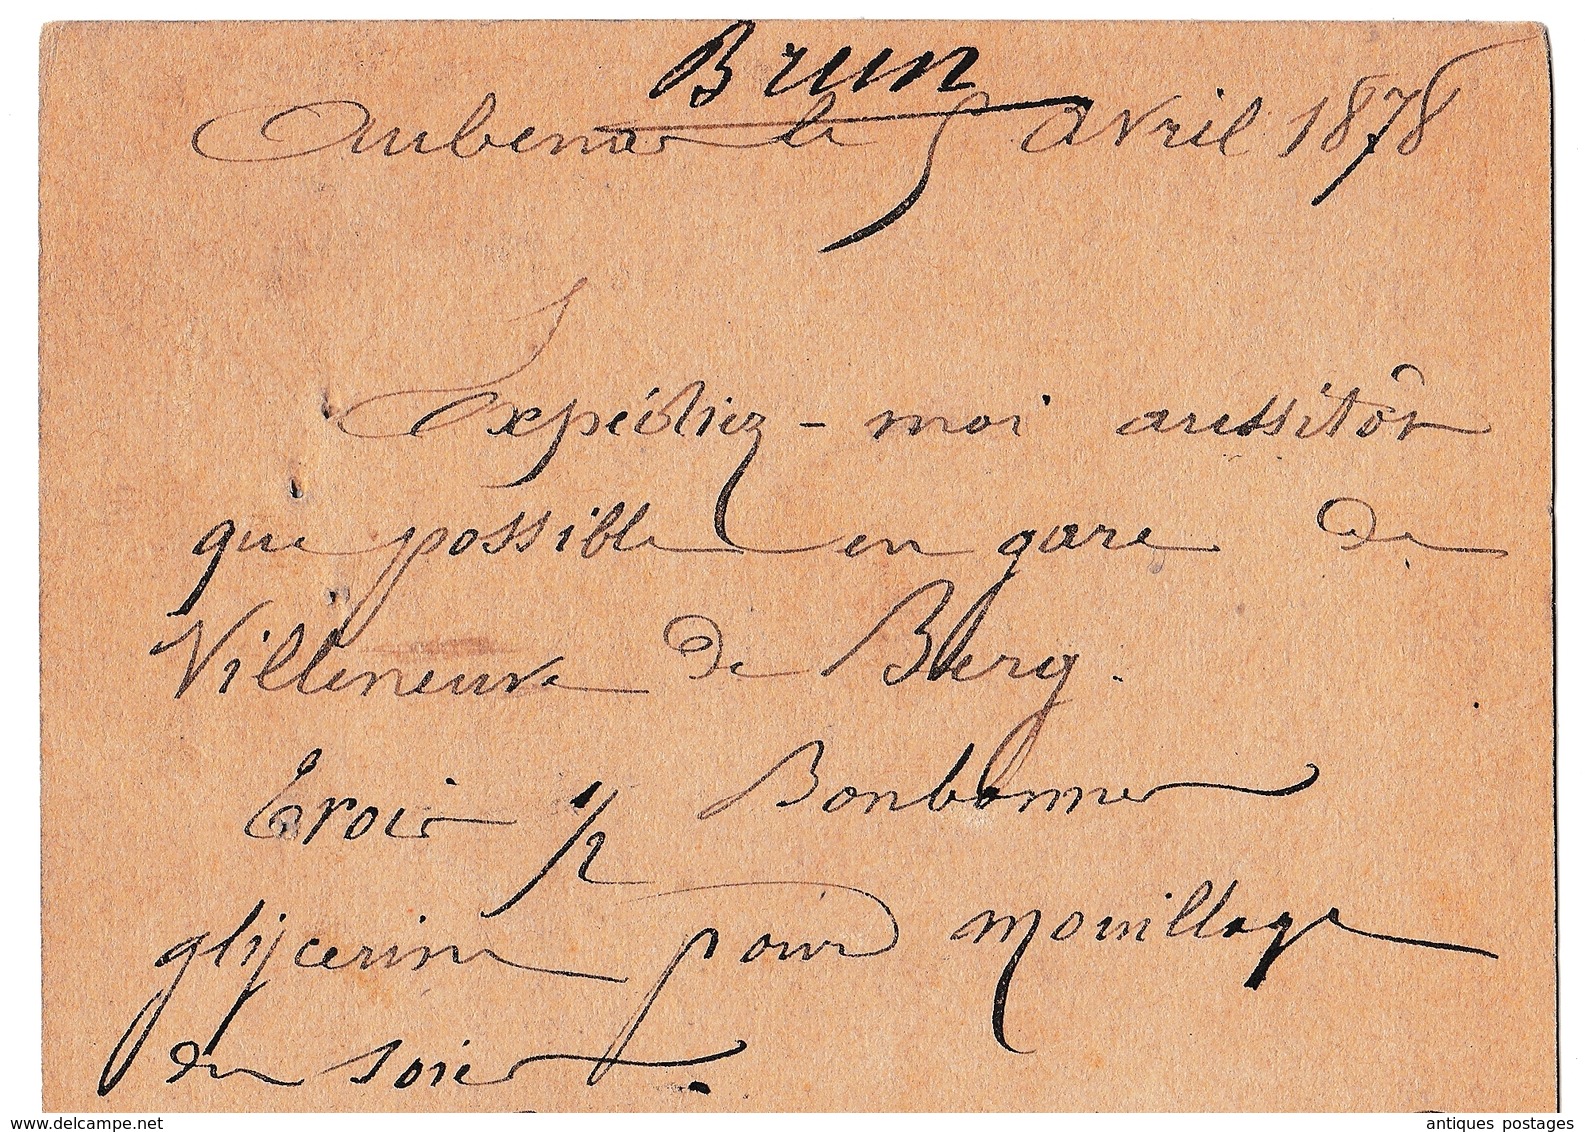 Brun
Aubenas le 5 avril 1878
Expédiez-moi aussitôt
que possible en gare de
Villeneuve de Berg.
Trois 1/2 Bonbonnes
glycerine pour mouillage
de soies.
delcampe.net
antiques postages